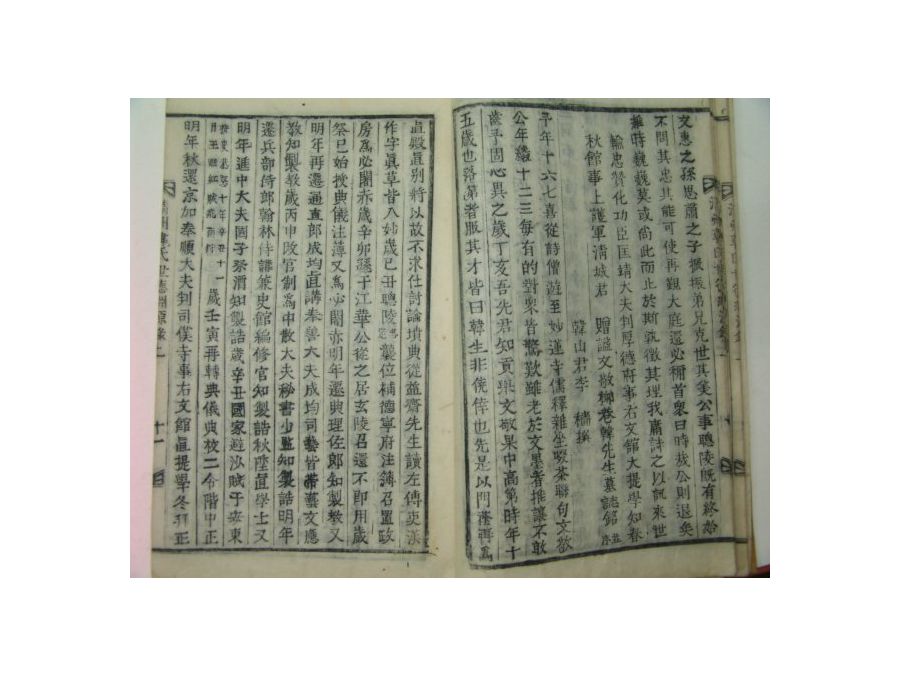 文惠之孫思肅之子振振弟兄克世其美公事聰陵既有終始
不問其忠其能可使再觀大庭還必柄首衆曰時哉公則退矣
維時巍巍莫或尚此而止於斯孰徵其理我庸詩之以訊來世
輸忠贊化功臣匡靖大夫判厚德府事右文館大提學知春
秋館事上護軍淸城君 贈諡文敬柳巷韓先生墓誌銘 並序
韓山君李 穡撰
予年十六七喜從詩僧遊至妙蓮寺儒釋雜坐啜茶聯句文敬
公年纔十二三每有的對衆皆驚歎雖老於文墨者推讓不敢
齒予固心異之歲丁亥吾先君知貢擧文敬果中高第時年十
五歲也路第者服其才皆曰韓生非僥倖也先是以門蔭再爲
眞殿直別將以故不求仕討論墳典從益齋先生讀左傳史漢
作字眞草皆入妙歲己丑聰陵襲位補德寧府注簿召置政
房爲必闍赤歲辛卯遜于江華公從之居玄陵召還不卽用歲
癸巳始授典儀注簿又爲必闍赤明年遷典理佐郞知製教又
明年再遷通直郞成均直講奉善大夫成均司藝皆帶藝文應
教知製教歲丙申改官制爲中散大夫秘書少監知製誥明年
遷兵部侍郞翰林侍講兼史館編修官知製誥秋陞直學士又
明年進中大夫國子祭酒知製誥歲辛丑國家避沙賊于安東
歲壬寅再轉典儀典校二令階中正
明年秋還京加奉順大夫判司僕寺事右文館直提學冬拜正
十一